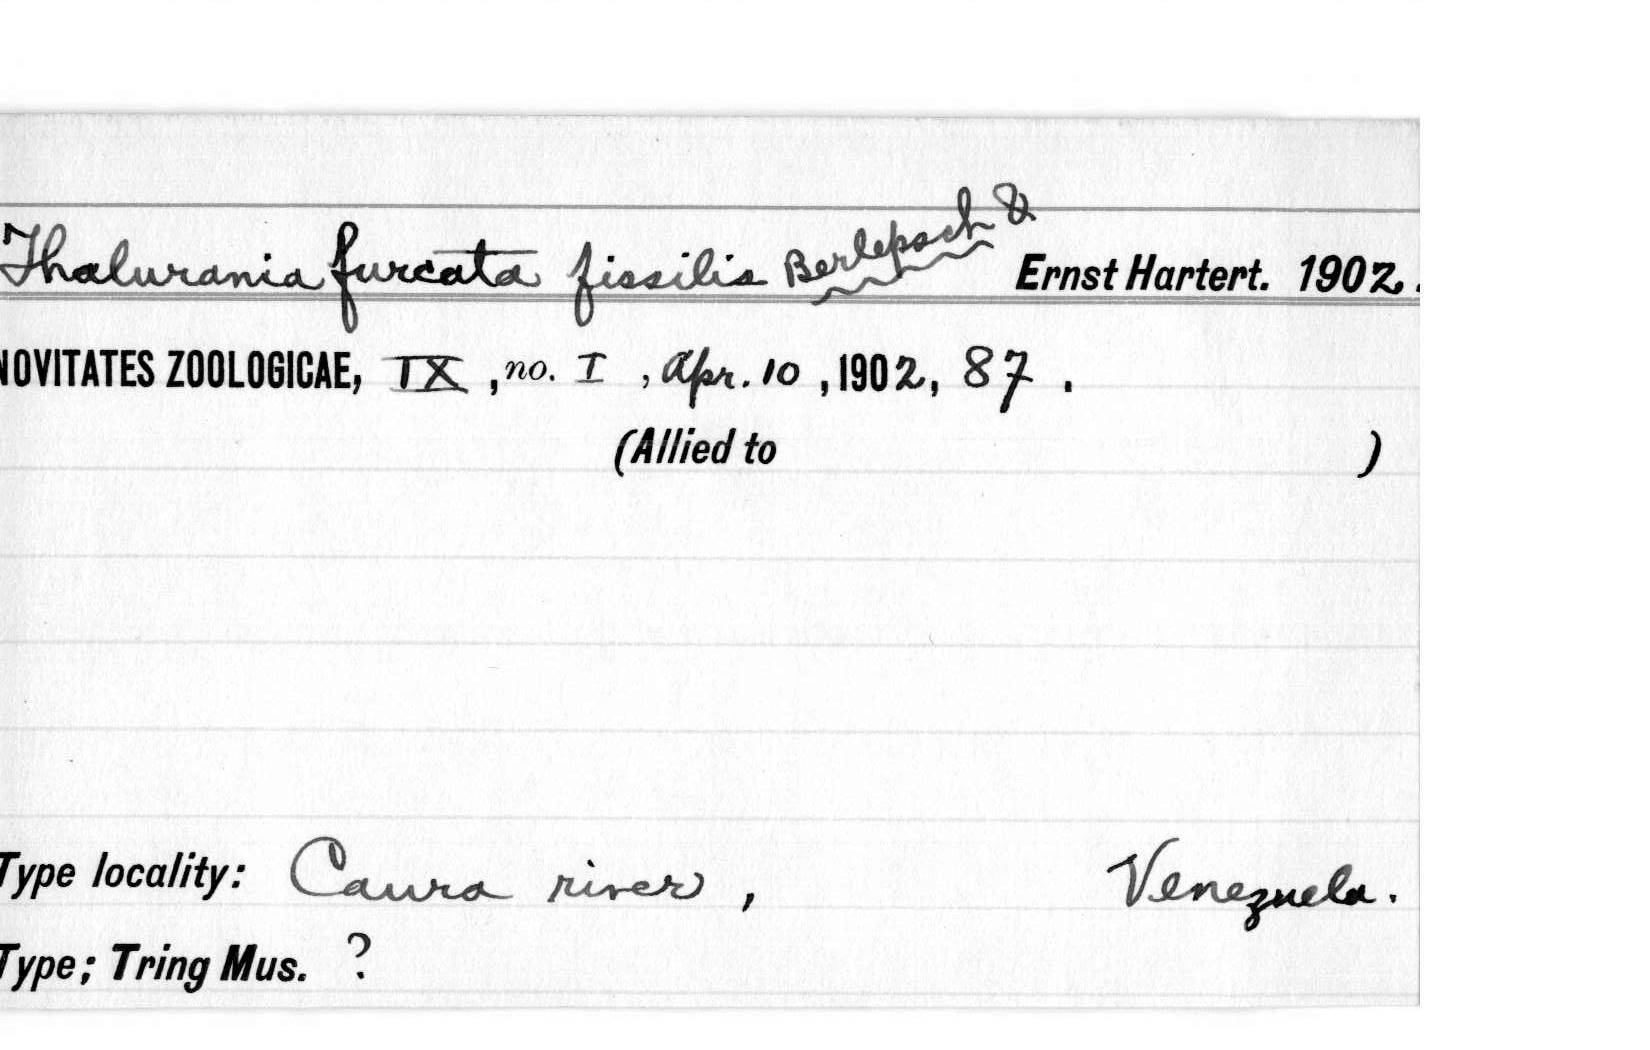 Thalurania furcata fissilis Berlepsch & Ernst Hartert. 1902.
NOVITATES ZOOLOGICAE, IX, no. I, Apr. 10, 1902, 87.
(Allied to )
Type locality: Caura river, Venezuela.
Type; Tring Mus. ?